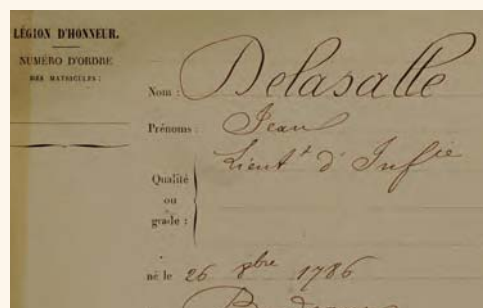 LÉGION D'HONNEUR.
NUMÉRO D'ORDRE
DES MATRICULES :
Nom : Delasalle
Prénoms : Jean
Lieut^t d'Inf^ie
Qualité
ou
grade :
né le 26 8bre 1786